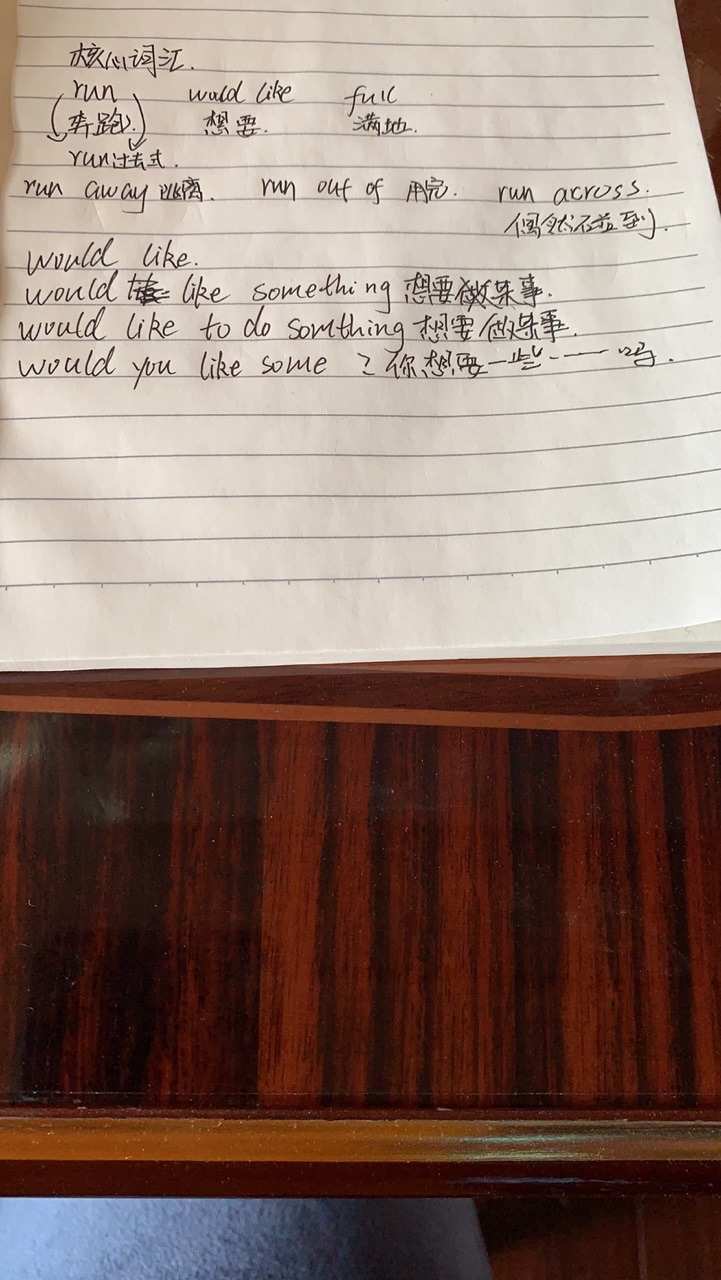 核心词汇.
run would like full
(奔跑) 想要. 满地.
run过去式.
run away 逃离. run out of 用完. run across.
偶然碰到.
would like.
would like something 想要做某事.
would like to do somthing 想要做某事.
would you like some ? 你想要一些……吗.